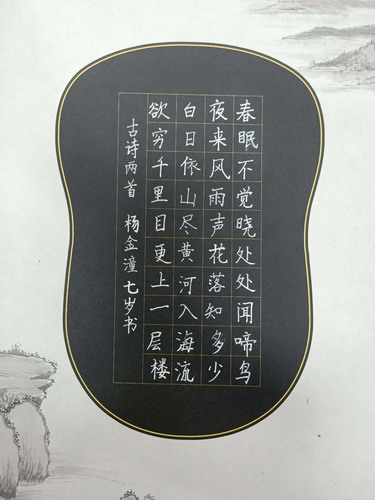 春眠不觉晓处处闻啼鸟
夜来风雨声花落知多少
白日依山尽黄河入海流
欲穷千里目更上一层楼
古诗两首 杨金潼 七岁书